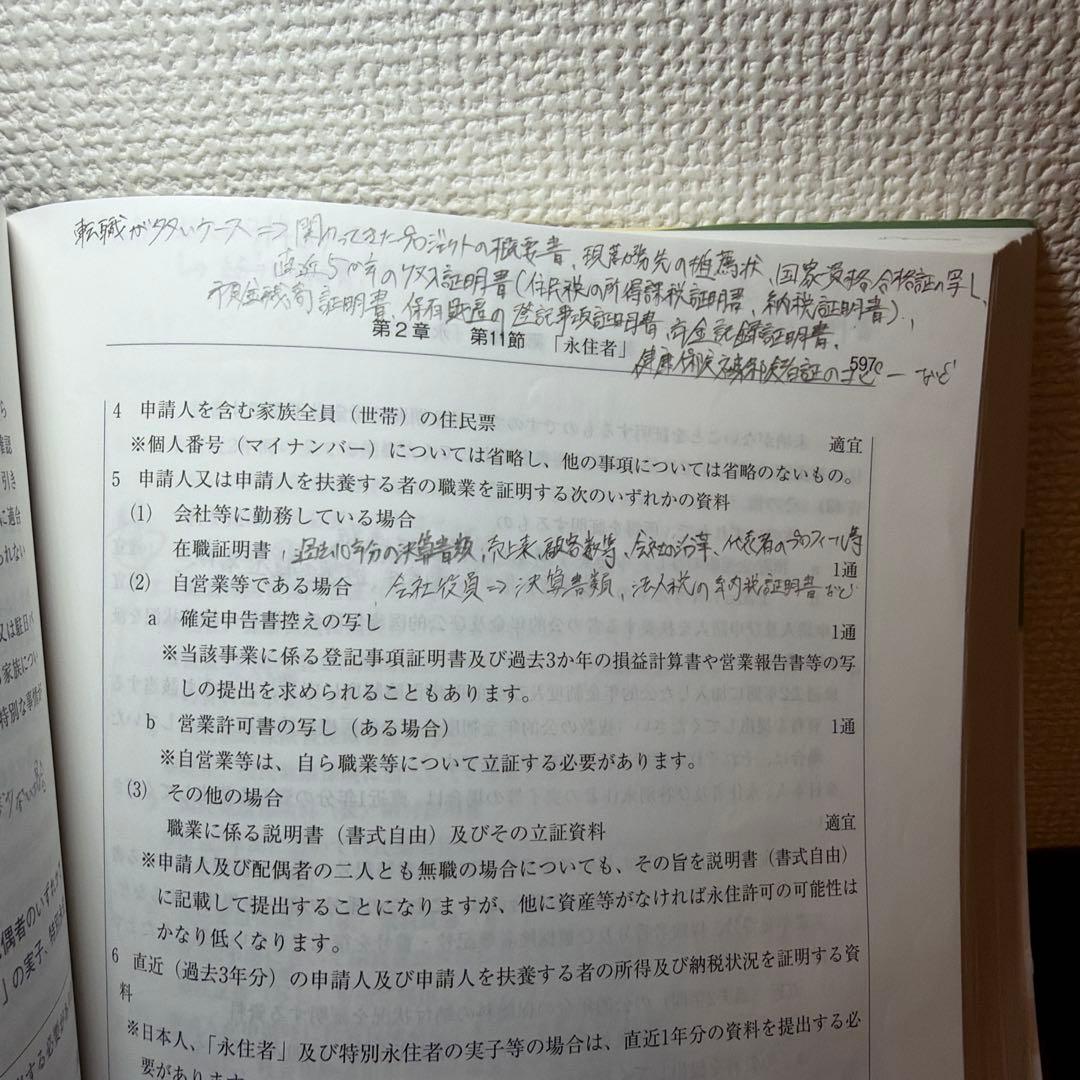 転職が多いケース⇒関わってきたプロジェクトの概要書、現勤務先の推薦状、国家資格合格証の写し、
直近5か年の収入証明書(住民税の所得課税証明書、納税証明書)、
預金残高証明書、保有財産の登記事項証明書、年金記録証明書、
健康保険被保険者証のコピー など
第2章 第11節 「永住者」 597
4 申請人を含む家族全員(世帯)の住民票 適宜
※個人番号(マイナンバー)については省略し、他の事項については省略のないもの。
5 申請人又は申請人を扶養する者の職業を証明する次のいずれかの資料
(1) 会社等に勤務している場合
在職証明書、過去10年分の決算書類、売上表、顧客数等、会社の沿革、代表者のプロフィール等 1通
(2) 自営業等である場合 会社役員⇒決算書類、法人税の納税証明書など
a 確定申告書控えの写し 1通
※当該事業に係る登記事項証明書及び過去3か年の損益計算書や営業報告書等の写
しの提出を求められることもあります。
b 営業許可書の写し(ある場合) 1通
※自営業等は、自ら職業等について立証する必要があります。
(3) その他の場合
職業に係る説明書(書式自由)及びその立証資料 適宜
※申請人及び配偶者の二人とも無職の場合についても、その旨を説明書(書式自由)
に記載して提出することになりますが、他に資産等がなければ永住許可の可能性は
かなり低くなります。
6 直近(過去3年分)の申請人及び申請人を扶養する者の所得及び納税状況を証明する資
料
※日本人、「永住者」及び特別永住者の実子等の場合は、直近1年分の資料を提出する必
要があります